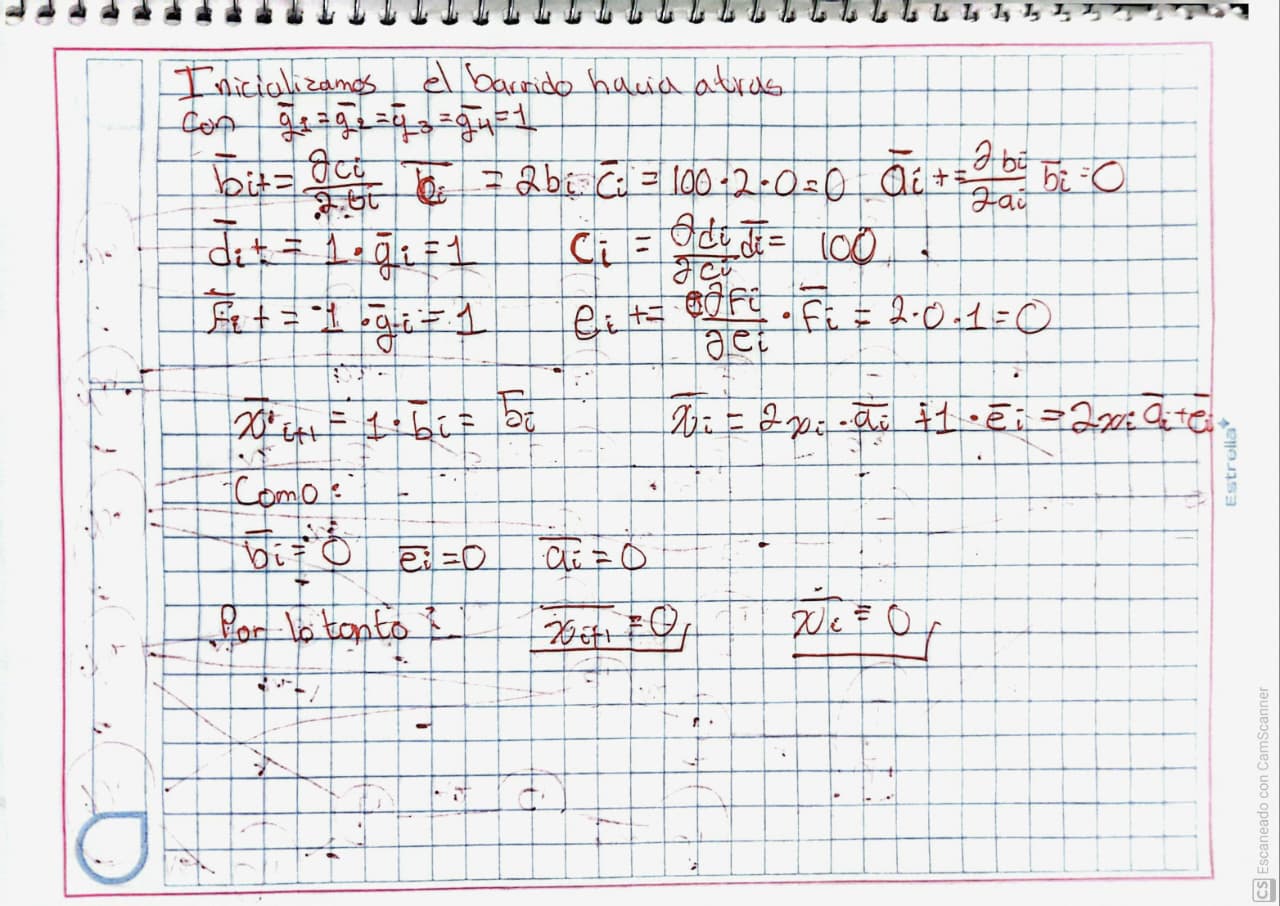 Inicializamos el barrido hacia atras
Con ḡ₁=ḡ₂=ḡ₃=ḡ₄=1
b̄i+= ∂ci/∂bi c̄i = 2bi c̄i = 100·2·0=0 āi += ∂bi/∂ai b̄i=0
d̄i+ = 1·ḡi=1 Ci = ∂di/∂ci d̄i= 100
F̄i + = 1·ḡi=1 ei += ∂Fi/∂ei · F̄i = 2·0·1=0
x̄i+1 = 1·b̄i= b̄i x̄i = 2xi·āi +1·ēi =2xi āi+ēi
Como:
b̄i=0 ēi=0 āi=0
Por lo tanto: x̄i+1 =0 x̄i = 0
Estrella
CS Escaneado con CamScanner